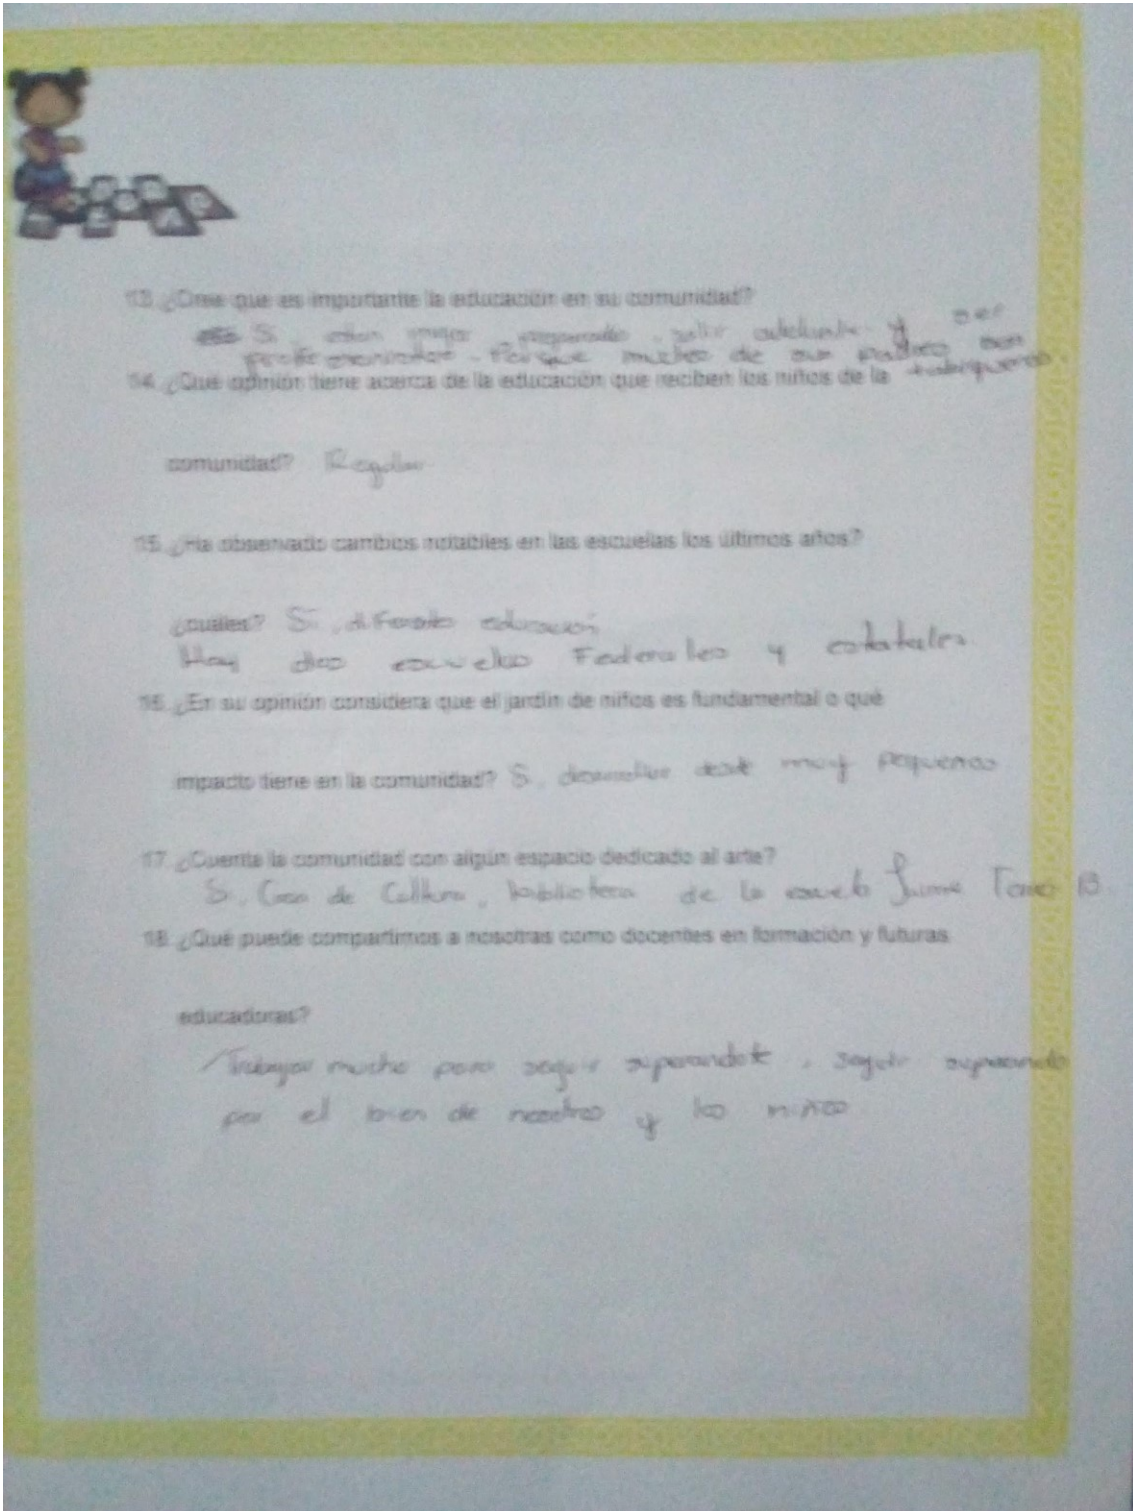 13. ¿Cree que es importante la educación en su comunidad?
Si, estan mejor preparados, salir adelante y ser
profesionistas. Porque muchos de sus padres son
14. ¿Qué opinión tiene acerca de la educación que reciben los niños de la tabiqueros.
comunidad? Regular
15. ¿Ha observado cambios notables en las escuelas los últimos años?
¿cuáles? Si, diferente educación
Hay dos escuelas Federales y estatales.
16. ¿En su opinión considera que el jardín de niños es fundamental o qué
impacto tiene en la comunidad? Si, desde muy pequeños
17. ¿Cuenta la comunidad con algún espacio dedicado al arte?
Si, Casa de Cultura, biblioteca de la escuela Jaime Torres B
18. ¿Qué puede compartirnos a nosotras como docentes en formación y futuras
educadoras?
Trabajar mucho para seguir superandote, seguir superando
por el bien de nosotros y los niños